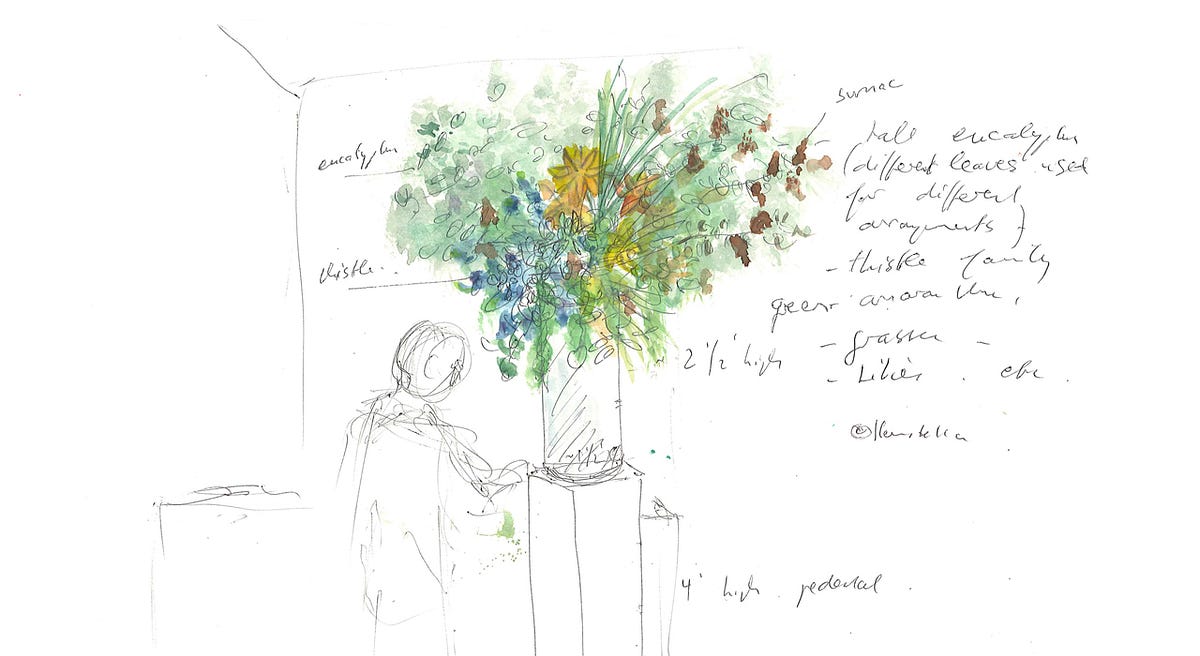 sumac
eucalyptus
thistle..
tall eucalyptus
(different leaves used
for different
arrangements)
- thistle family
green amaranthus,
- grasses -
2 1/2' high
- Lilies . etc .
4' high pedestal .